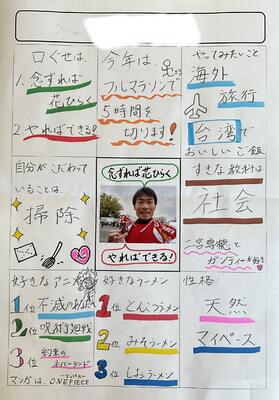 口ぐせは、
1. 念ずれば
花ひらく
2. やればできる!
今年は、
フルマラソンで
5時間を
切ります!
やってみたいこと
海外
旅行
台湾で
おいしいご飯
自分がこだわって
いることは
掃除
念ずれば花ひらく
やればできる!
すきな教科は
社会
二宮尊徳と
ガンディーが好き
好きなアニメ
1位 不滅の
2位 呪術廻戦
3位 約束の
ネバーランド
マンガは、ONE PIECE
好きなラーメン
1位 とんこつラーメン
2位 みそラーメン
3位 しょうラーメン
性格
天然
マイペース